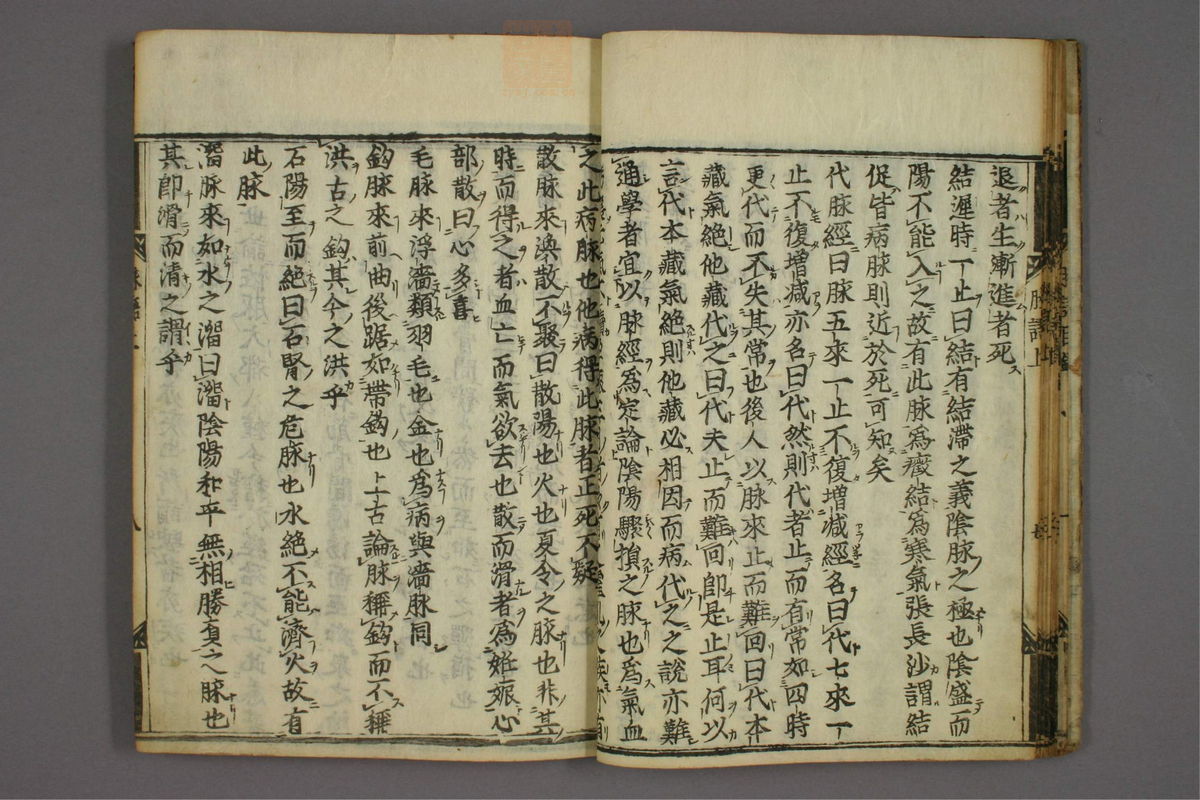 退者生漸進者死
結遲時一止曰結有結滯之義陰脉之極也陰盛而
陽不能入之故有此脉爲癥結爲寒氣張長沙謂結
促皆病脉則近於死可知矣
代脉經曰脉五來一止不復增减經名曰代七來一
止不復增减亦名曰代然則代者止而有常如四時
更代而不失其常也後人以脉來止而難回曰代本
藏氣絶他藏代之曰代夫止而難回即是止耳何以
言代本藏氣絶則他藏必相因而病代之之說亦難
通學者宜以脉經爲定論陰陽驟損之脉也爲氣血
之此病脉也他病得此脉者正死不疑
散脉來渙散不聚曰散陽也火也夏令之脉也非其
時而得之者血亡而氣欲去也散而滑者爲姙娠心
部散曰心多喜
毛脉來浮濇類羽毛也金也爲病與濇脉同
鈎脉來前曲後踞如帶鈎也上古論脉稱鈎而不稱
洪古之鈎其今之洪乎
石陽至而絶曰石腎之危脉也水絶不能濟火故有
此脉
溜脉來如水之溜曰溜陰陽和平無相勝負之脉也
其即滑而清之謂乎
脉語上